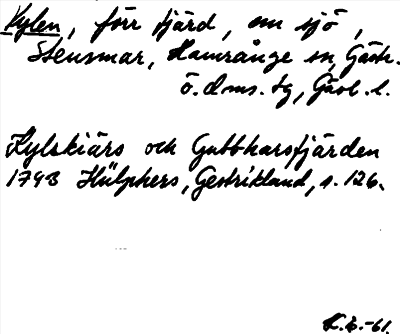 Kylen, förr fjärd, nu sjö,
Stensmar, Hamrånge sn, Gästr.
ö. dms. tg, Gävl. l.
Kylskiärs och Gubbharsfjärden
1793 Hülphers, Gestrikland, s. 126.
K.b.-61.